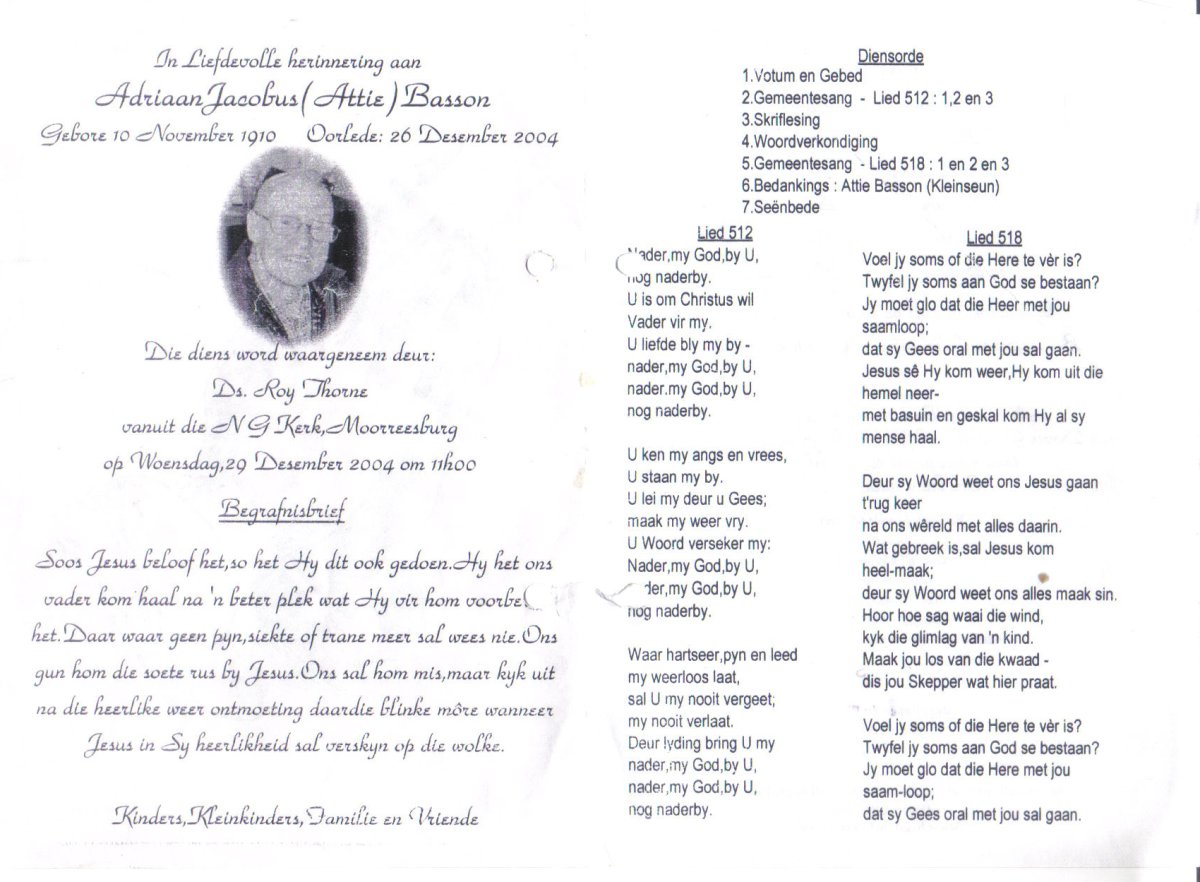 In Liefdevolle herinnering aan
Adriaan Jacobus (Attie) Basson
Gebore 10 November 1910 Oorlede: 26 Desember 2004
Die diens word waargeneem deur:
Ds. Roy Thorne
vanuit die N G Kerk,Moorreesburg
op Woensdag,29 Desember 2004 om 11h00
Begrafnisbrief
Soos Jesus beloof het,so het Hy dit ook gedoen.Hy het ons
vader kom haal na 'n beter plek wat Hy vir hom
het.Daar waar geen pyn,siekte of trane meer sal wees nie.Ons
gun hom die soete rus by Jesus.Ons sal hom mis,maar kyk uit
na die heerlike weer ontmoeting daardie blinke môre wanneer
Jesus in Sy heerlikheid sal verskyn op die wolke.
Kinders,Kleinkinders,Familie en Vriende
Diensorde
1.Votum en Gebed
2.Gemeentesang - Lied 512 : 1,2 en 3
3.Skriflesing
4.Woordverkondiging
5.Gemeentesang - Lied 518 : 1 en 2 en 3
6.Bedankings : Attie Basson (Kleinseun)
7.Seënbede
Lied 512
Nader,my God,by U,
nog naderby.
U is om Christus wil
Vader vir my.
U liefde bly my by -
nader,my God,by U,
nader.my God,by U,
nog naderby.
U ken my angs en vrees,
U staan my by.
U lei my deur u Gees;
maak my weer vry.
U Woord verseker my:
Nader,my God,by U,
nader,my God,by U,
nog naderby.
Waar hartseer,pyn en leed
my weerloos laat,
sal U my nooit vergeet;
my nooit verlaat.
Deur lyding bring U my
nader,my God,by U,
nader,my God,by U,
nog naderby.
Lied 518
Voel jy soms of die Here te vèr is?
Twyfel jy soms aan God se bestaan?
Jy moet glo dat die Heer met jou
saamloop;
dat sy Gees oral met jou sal gaan.
Jesus sê Hy kom weer,Hy kom uit die
hemel neer-
met basuin en geskal kom Hy al sy
mense haal.
Deur sy Woord weet ons Jesus gaan
t'rug keer
na ons wêreld met alles daarin.
Wat gebreek is,sal Jesus kom
heel-maak;
deur sy Woord weet ons alles maak sin.
Hoor hoe sag waai die wind,
kyk die glimlag van 'n kind.
Maak jou los van die kwaad -
dis jou Skepper wat hier praat.
Voel jy soms of die Here te vèr is?
Twyfel jy soms aan God se bestaan?
Jy moet glo dat die Here met jou
saam-loop;
dat sy Gees oral met jou sal gaan.